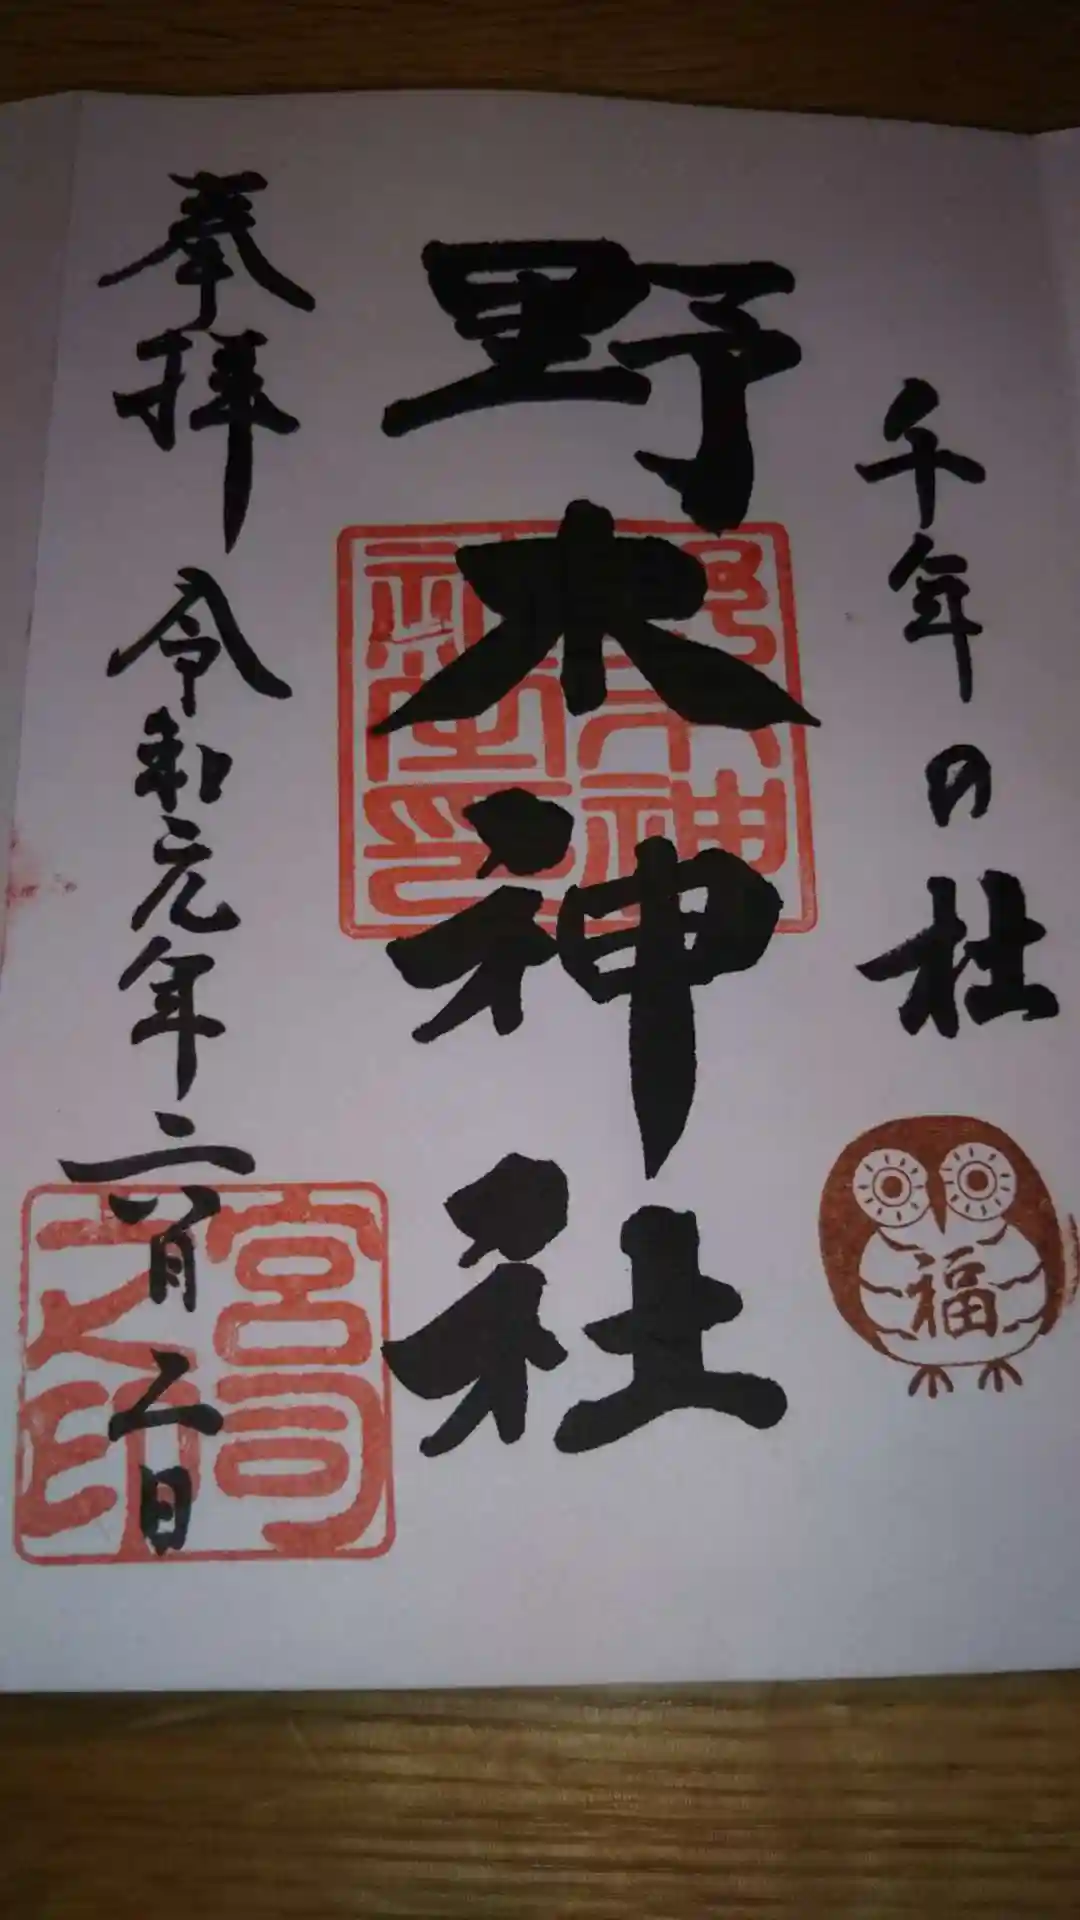 千年の杜
福
野木神社
野木神社璽印
奉拝 令和元年六月二日
宮司之印